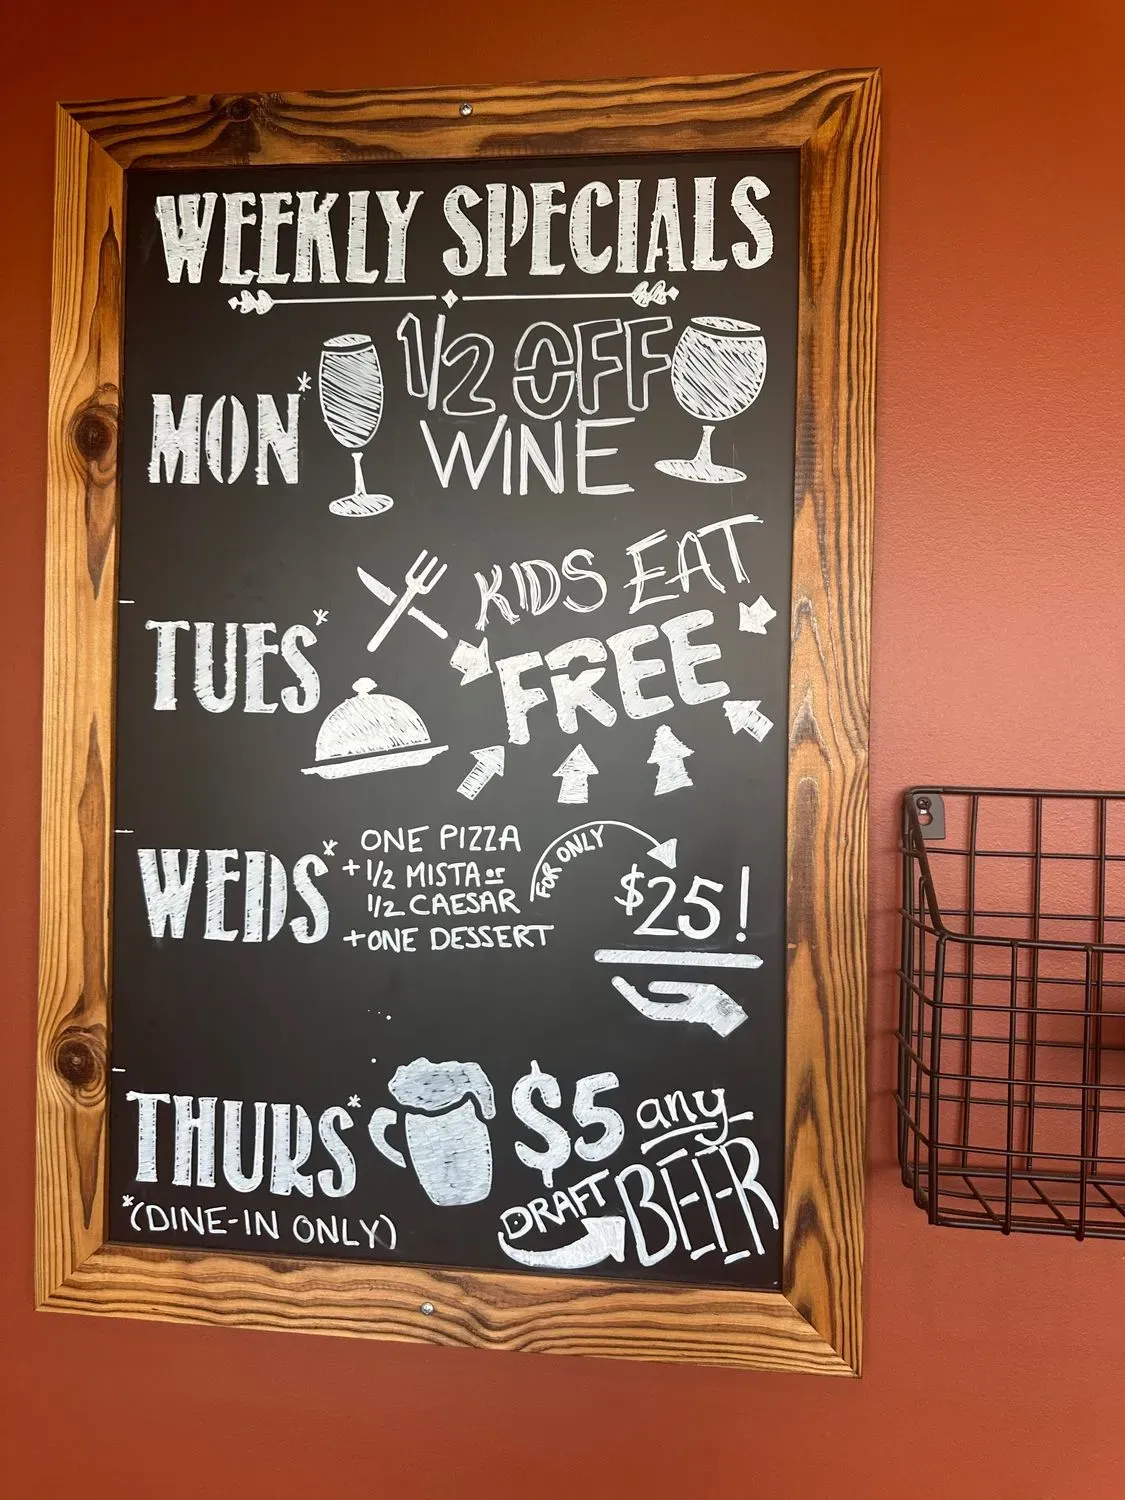 WEEKLY SPECIALS
MON*
1/2 OFF
WINE
TUES*
KIDS EAT
FREE
WEDS*
ONE PIZZA
+ 1/2 MISTA or
1/2 CAESAR
+ ONE DESSERT
FOR ONLY
$25!
THURS*
$5 any
DRAFT BEER
*(DINE-IN ONLY)